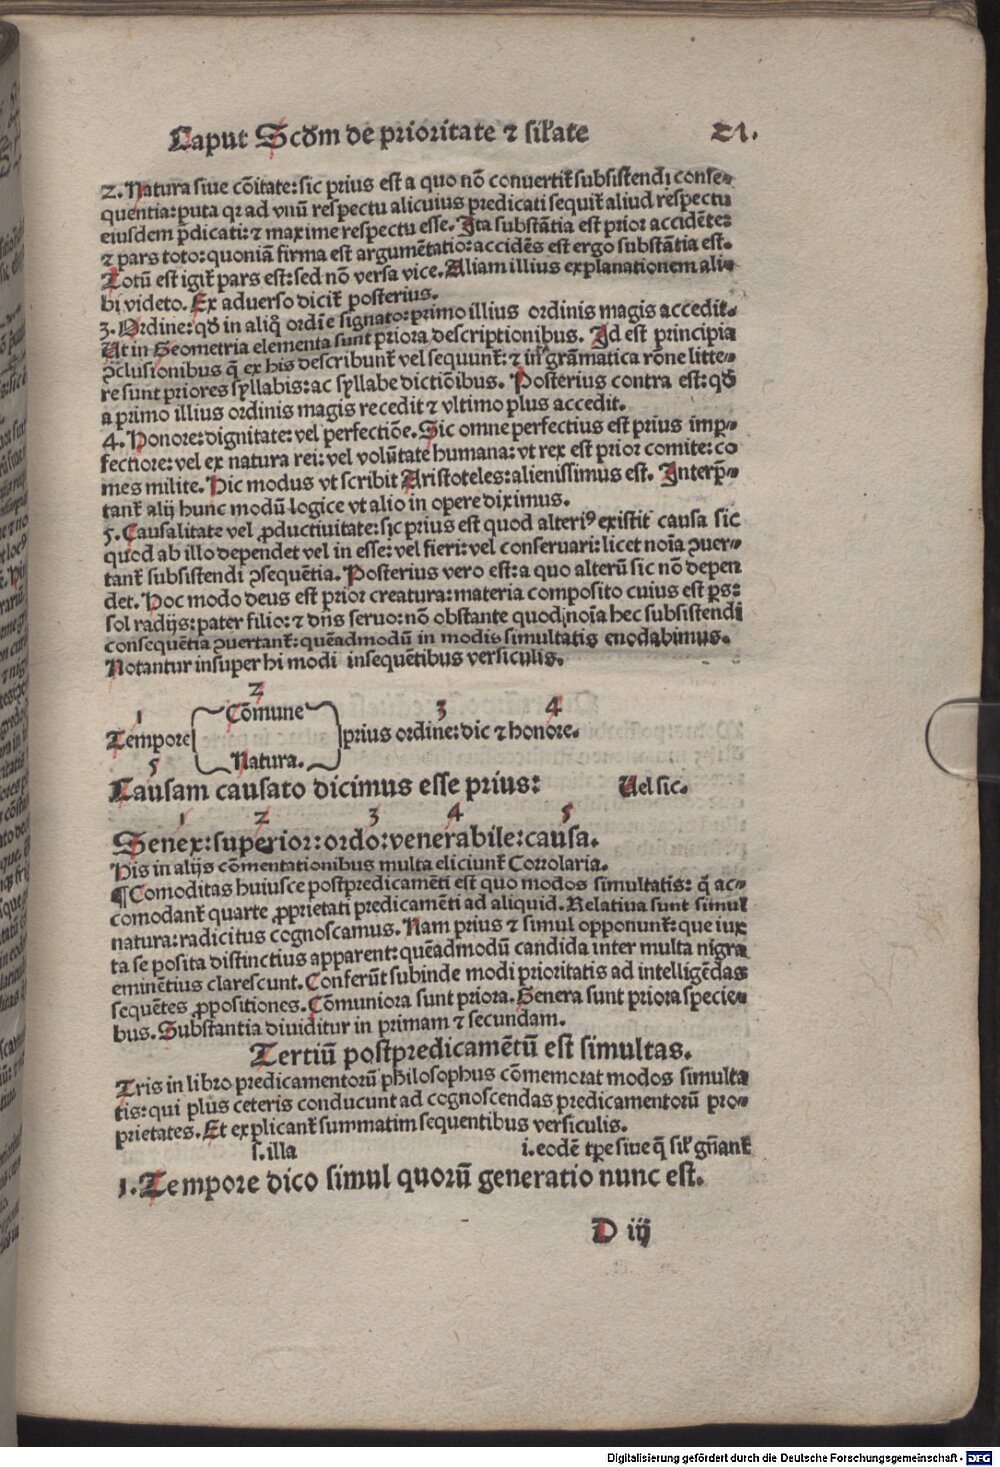 Caput Scd̄m de prioritate ⁊ sil'tate 21.
2. Natura siue cōitate: sic prius est a quo nō conuertit᷑ subsistendi conse-
quentia: puta qr ad vnū respectu alicuius predicati sequit᷑ aliud respectu
eiusdem p̄dicati: ⁊ maxime respectu esse. Ita substātia est prior accidēte:
⁊ pars toto: quoniā firma est argumētatio: accidēs est ergo substātia est.
Totū est igit᷑ pars est: sed nō versa vice. Aliam illius explanationem ali-
bi videto. Ex aduerso dicit᷑ posterius.
3. Ordine: qd̄ in aliq̄ ordīe signato: primo illius ordinis magis accedit.
Ut in Geometria elementa sunt priora descriptionibus. Id est principia
ꝯclusionibus q̄ ex his describunt᷑ vel sequunt᷑: ⁊ in grāmatica rōne litte-
re sunt priores syllabis: ac syllabe dictiōibus. Posterius contra est: qd̄
a primo illius ordinis magis recedit ⁊ vltimo plus accedit.
4. Honore: dignitate: vel perfectiōe. Sic omne perfectius est prius imp-
fectiore: vel ex natura rei: vel volūtate humana: vt rex est prior comite: co
mes milite. Hic modus vt scribit Aristoteles: alienissimus est. Interp̄-
tant᷑ alij hunc modū logice vt alio in opere diximus.
5. Causalitate vel ꝓductiuitate: sic prius est quod alteriꝰ existit causa sic
quod ab illo dependet vel in esse: vel fieri: vel conseruari: licet noīa ꝯuer-
tant᷑ subsistendi ꝯsequētia. Posterius vero est: a quo alterū sic nō depen
det. Hoc modo deus est prior creatura: materia composito cuius est ps:
sol radijs: pater filio: ⁊ dn̄s seruo: nō obstante quod noīa hec subsistendi
consequētia ꝯuertant᷑: quēadmodū in modis simultatis enodabimus.
Notantur insuper hi modi insequētibus versiculis.
2
1 Cōmune 3 4
Tempore prius ordine: dic ⁊ honore.
5 Natura.
Causam causato dicimus esse prius: Uel sic.
1 2 3 4 5
Senex: superior: ordo: venerabile: causa.
His in alijs cōmentationibus multa eliciunt᷑ Corrolaria.
¶Comoditas huiusce postpredicamēti est quo modos simultatis: q̄ ac-
comodant᷑ quarte ꝓprietati predicamēti ad aliquid. Relatiua sunt simul
natura: radicitus cognoscamus. Nam prius ⁊ simul opponunt᷑: que iux
ta se posita distinctius apparent: quēadmodū candida inter multa nigra
eminētius clarescunt. Conferūt subinde modi prioritatis ad intelligēdas
sequētes ꝓpositiones. Cōmuniora sunt priora. Genera sunt priora specie-
bus. Substantia diuiditur in primam ⁊ secundam.
Tertiū postpredicamētū est simultas.
Tris in libro predicamentorū philosophus cōmemorat modos simulta
tis: qui plus ceteris conducunt ad cognoscendas predicamentorū pro-
prietates. Et explicant᷑ summatim sequentibus versiculis.
s. illa i. eodē tp̄e siue q̄ sil' gn̄ant᷑
1. Tempore dico simul quorū generatio nunc est.
D iij
Digitalisierung gefördert durch die Deutsche Forschungsgemeinschaft - DFG